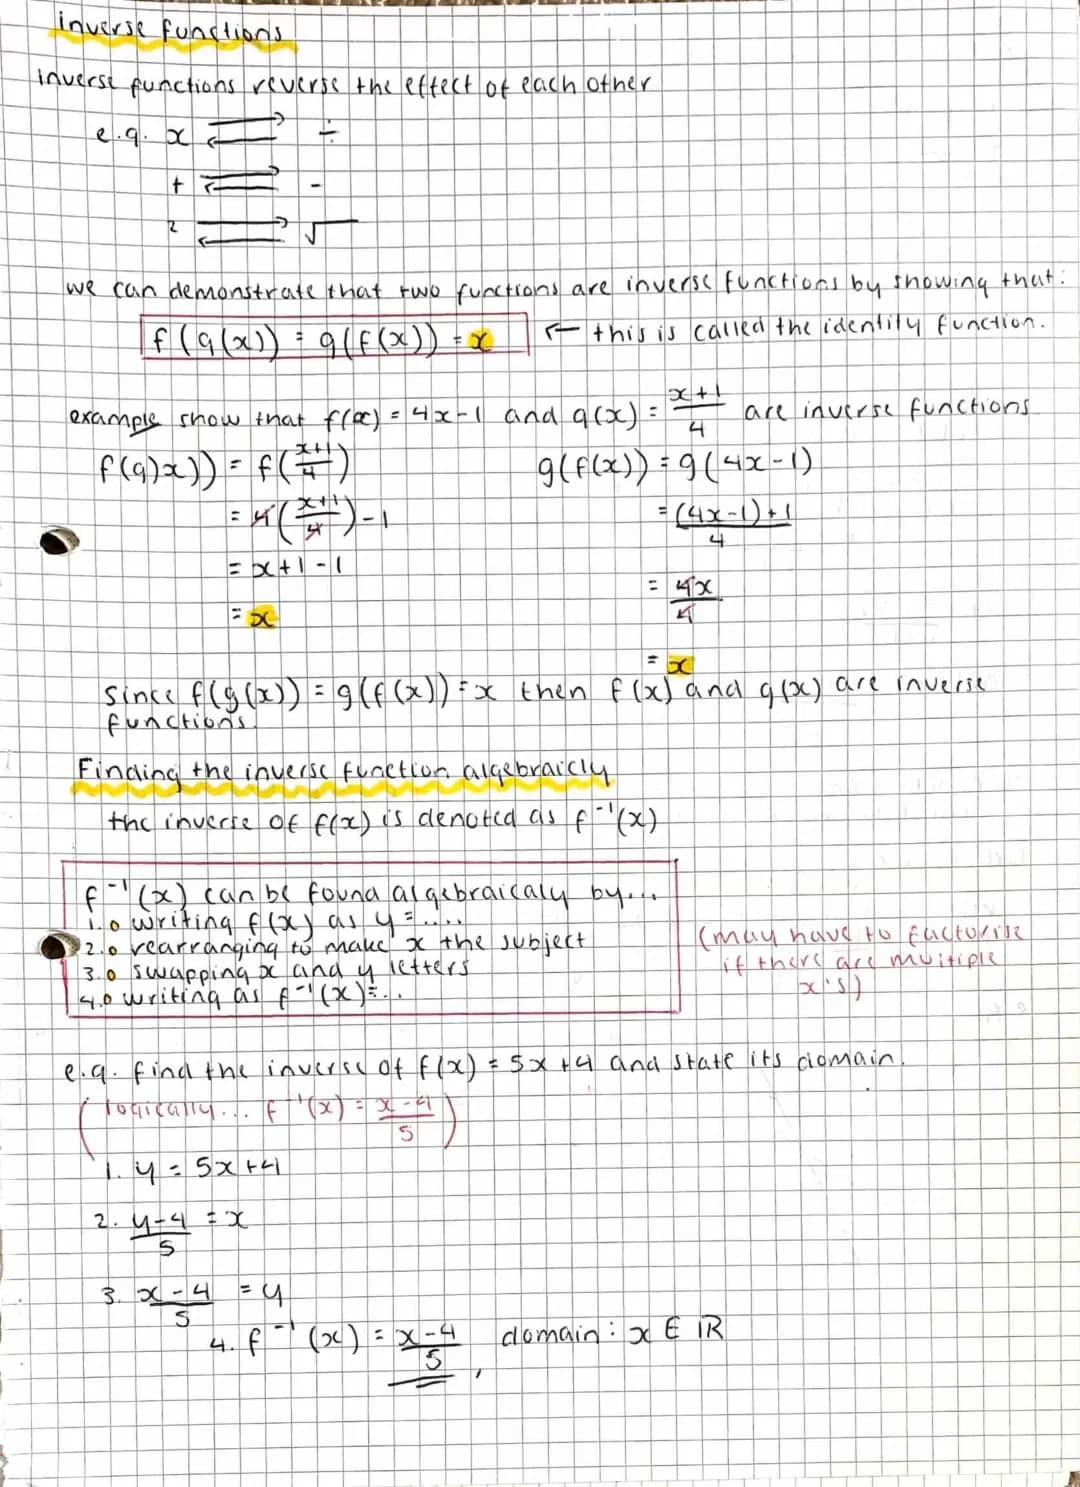 inverse functions
inverse functions reverse the effect of each other
e.g. x ⇄ ÷
+ ⇄ -
² ⇄ √
we can demonstrate that two functions are inverse functions by showing that:
f(g(x)) = g(f(x)) = x ← this is called the identity function.
example show that f(x) = 4x-1 and g(x) = \frac{x+1}{4} are inverse functions
f(g)x)) = f(\frac{x+1}{4})
= 4(\frac{x+1}{4})-1
= x+1-1
= x
g(f(x)) = g(4x-1)
= \frac{(4x-1)+1}{4}
= \frac{4x}{4}
= x
since f(g(x)) = g(f(x)) = x then f(x) and g(x) are inverse
functions.
Finding the inverse function algebraicly
the inverse of f(x) is denoted as f⁻¹(x)
f⁻¹(x) can be found algebraicaly by...
1.o writing f(x) as y = .....
2.o rearranging to make x the subject
3.o swapping x and y letters
4.o writing as f⁻¹(x)=...
(may have to factorise
if there are multiple
x's)
e.g. find the inverse of f(x) = 5x+4 and state its domain.
(logically... f⁻¹(x) = \frac{x-4}{5})
1. y = 5x+4
2. \frac{y-4}{5} = x
3. \frac{x-4}{5} = y
4. f⁻¹(x) = \frac{x-4}{5}, domain: x ∈ ℝ